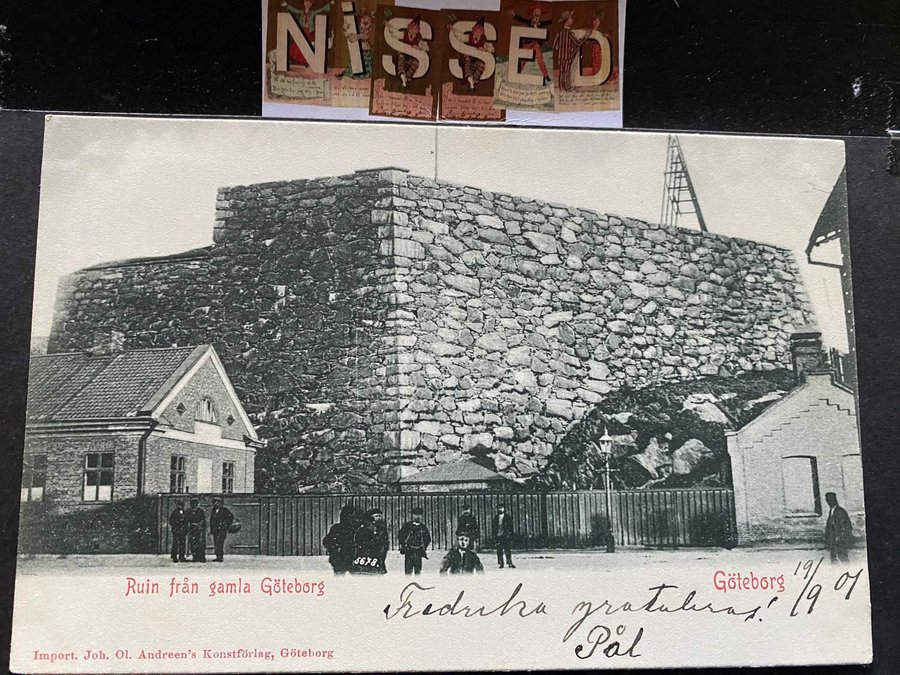 NiSSED
5678.
Ruin från gamla Göteborg
Göteborg 19/9 01
Fredrika gratuleras!
Pål
Import. Joh. Ol. Andreen's Konstförlag, Göteborg